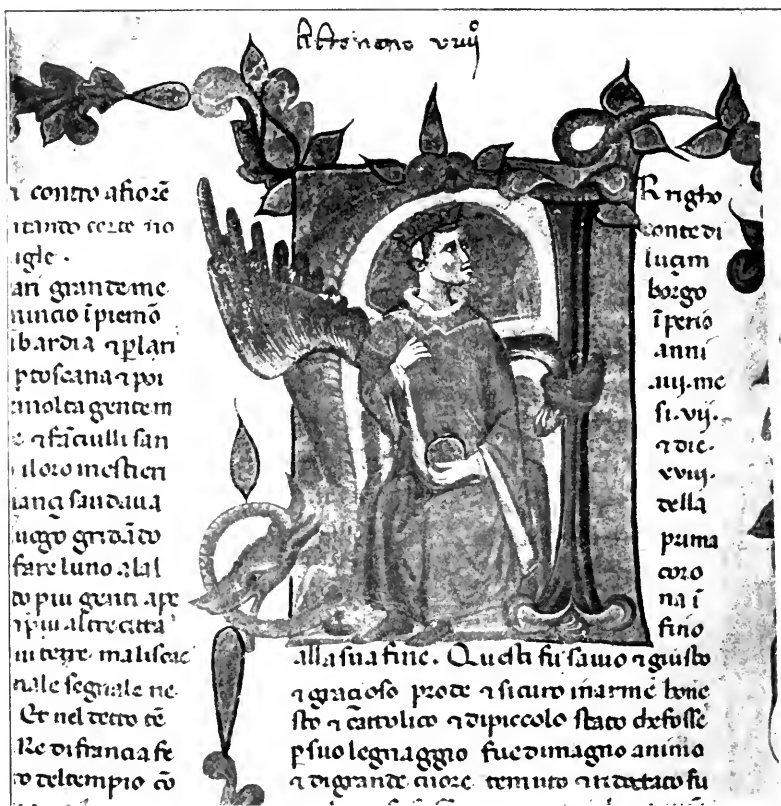 contro a fiorē
certe no
igle .
ari grande me
nuncio ī piemō
ibardia ⁊ ꝑ lari
ꝑ toscana ⁊ poi
molta gente m
e ⁊ fāciulli san
iloro mestieri
saudaua
uogo gridādo
fare luno alal
to piu genti ape
piu altre citta
terre .
segnale ne
Et nel detto tē
Re di francia fe
to deltempio cō
Rrigho
conte di
luçim
borgo
īperio
anni
.iiij. me
si . vij .
⁊ die .
xviij .
della
prima
coro
na ī
fino
alla sua fine . Questi fu sauio ⁊ giusto
⁊ gracioso prode ⁊ sicuro in arme hone
sto ⁊ cattolico ⁊ di piccolo stato che fosse
ꝑ suo legnaggio fue di magno animo
⁊ di grande cuore temuto ⁊ fu